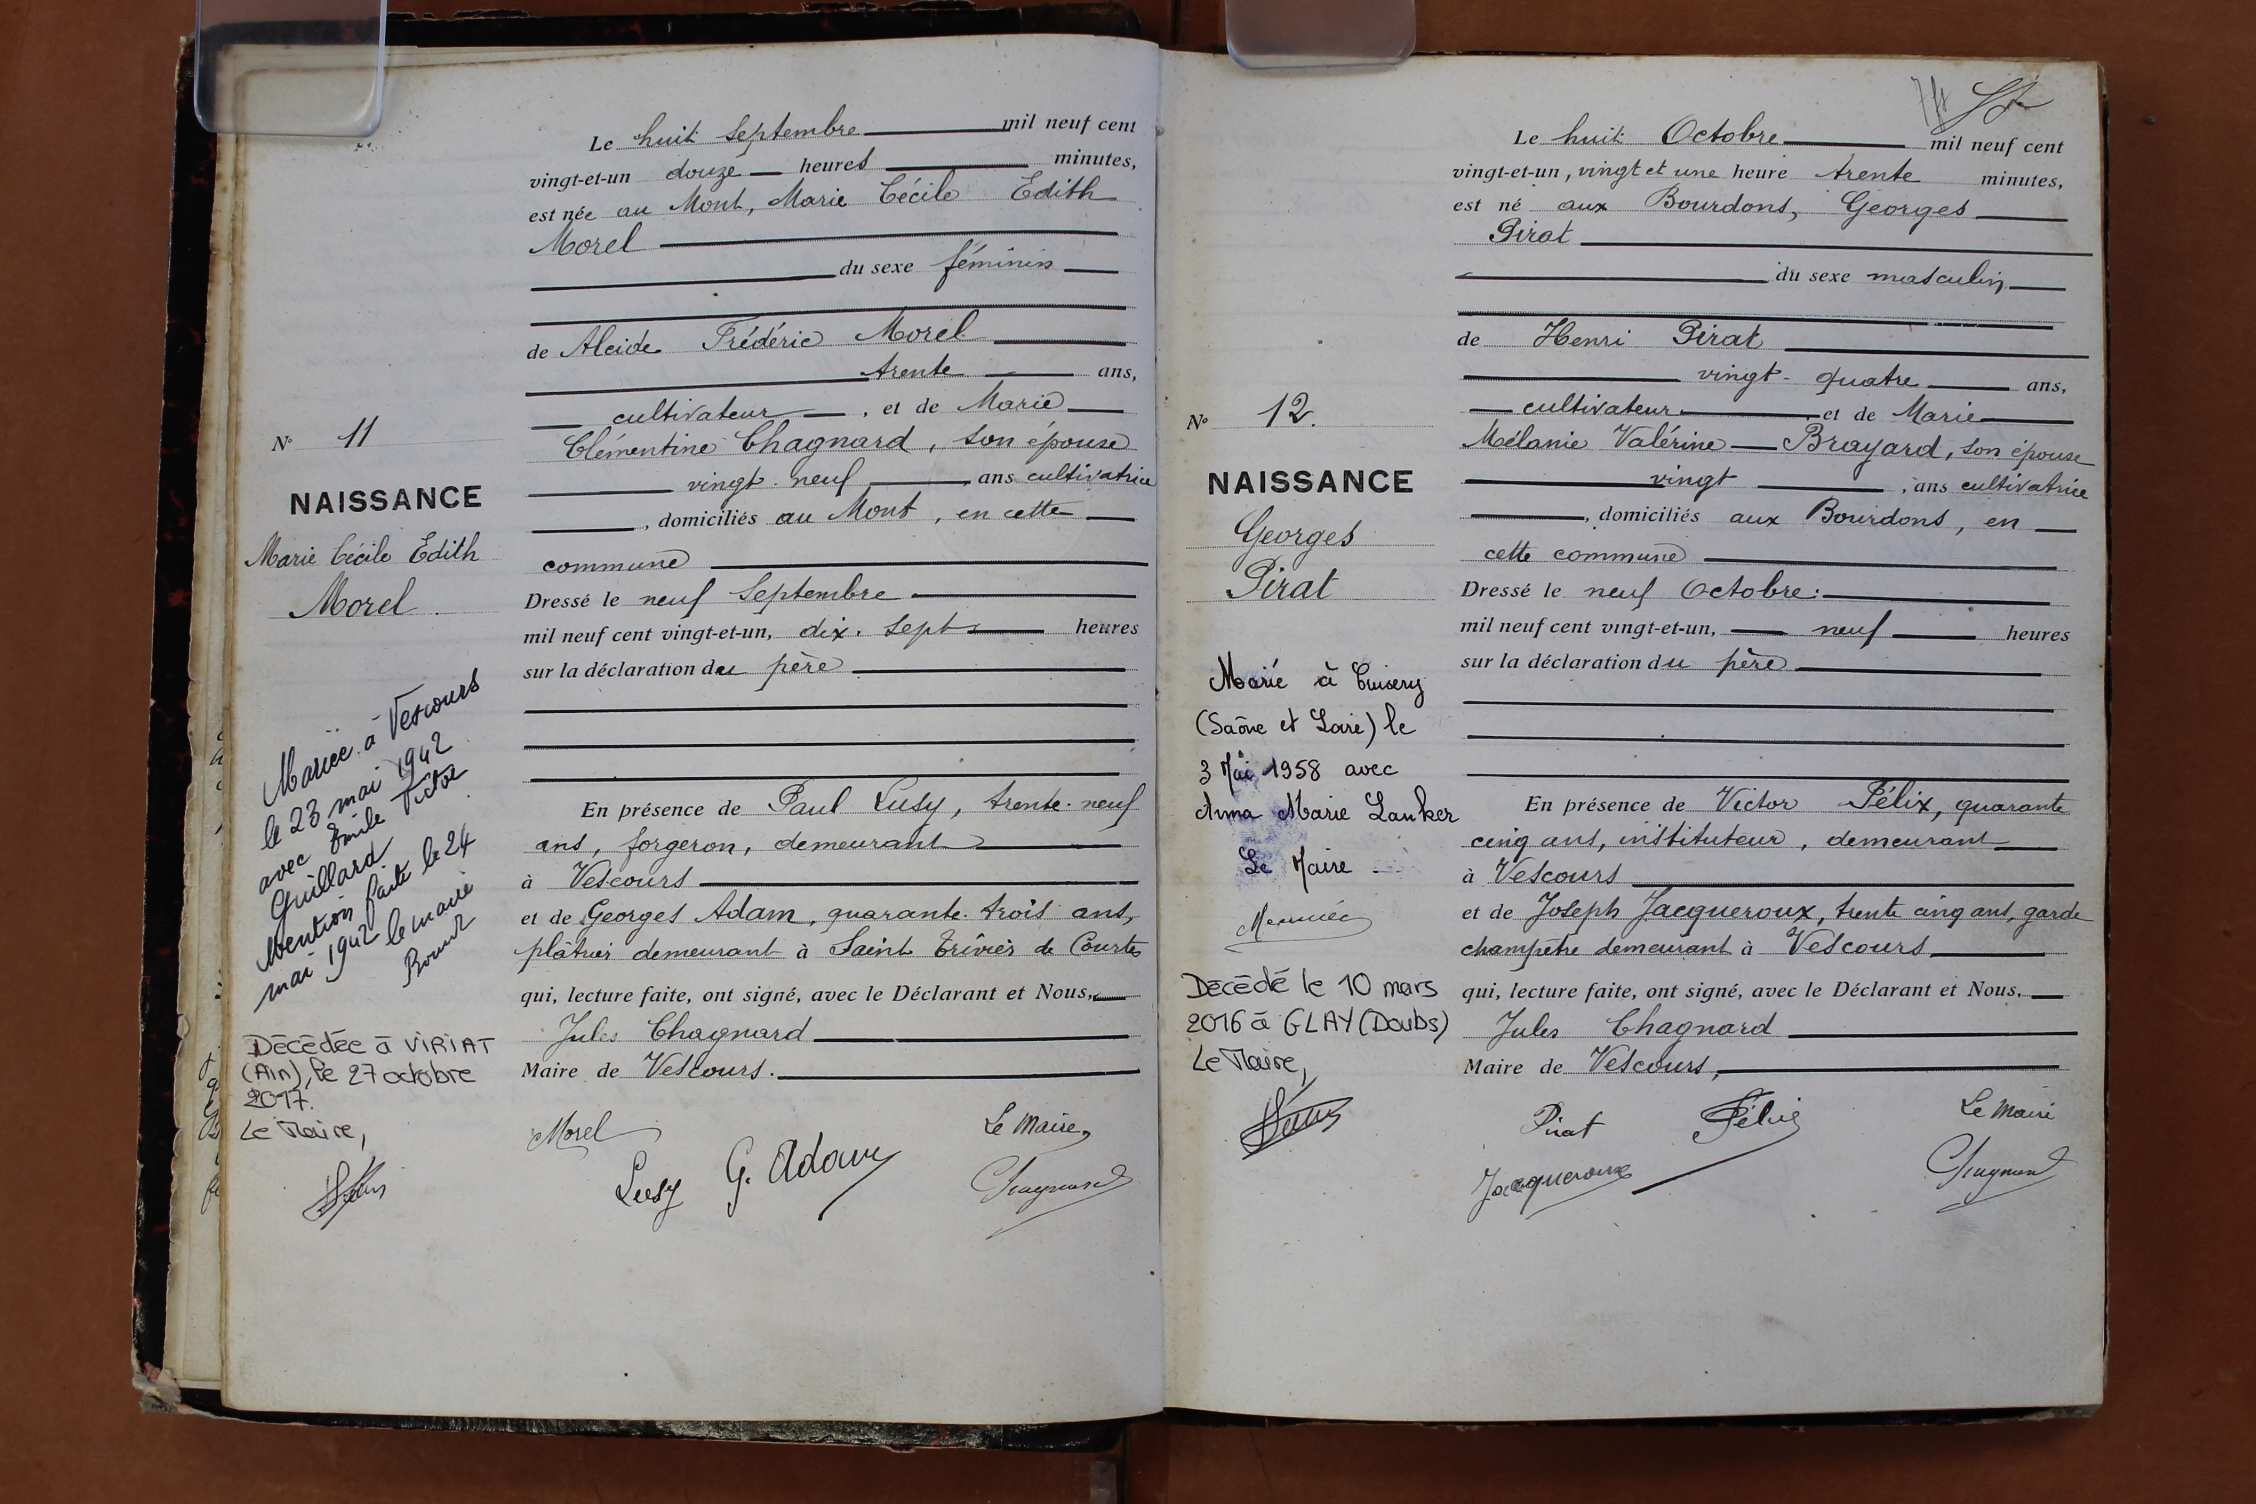 Le huit Septembre mil neuf cent
vingt-et-un douze heures minutes,
est née au Mont, Marie Cécile Edith
Morel
du sexe féminin
de Alcide Frédéric Morel
trente ans,
cultivateur, et de Marie
Clémentine Chagnard, son épouse
vingt-neuf ans cultivatrice
, domiciliés au Mont, en cette
commune
Dressé le neuf Septembre
mil neuf cent vingt-et-un, dix-sept heures
sur la déclaration du père
En présence de Paul Lusy, trente-neuf
ans, forgeron, demeurant
à Vescours
et de Georges Adam, quarante-trois ans,
plâtrier demeurant à Saint Trivier de Courtes
qui, lecture faite, ont signé, avec le Déclarant et Nous,
Jules Chagnard
Maire de Vescours.
Morel
Le Maire,
Lusy G. Adam
Chagnard
N° 11
NAISSANCE
Marie Cécile Edith
Morel
Mariée à Vescours
le 23 mai 1942
avec Emile Victor
Guillard
Mention faite le 24
mai 1942 le maire
Décédée à VIRIAT
(Ain), le 27 octobre
2017.
Le Maire,
Le huit Octobre mil neuf cent
vingt-et-un, vingt et une heure trente minutes,
est né aux Bourdons, Georges
Pirat
du sexe masculin
de Henri Pirat
vingt-quatre ans,
cultivateur et de Marie
Mélanie Valérine Brayard, son épouse
vingt, ans cultivatrice
, domiciliés aux Bourdons, en
cette commune
Dressé le neuf Octobre:
mil neuf cent vingt-et-un, neuf heures
sur la déclaration du père
En présence de Victor Félix, quarante
cinq ans, instituteur, demeurant
à Vescours
et de Joseph Jacqueroux, trente cinq ans, garde
champêtre demeurant à Vescours
qui, lecture faite, ont signé, avec le Déclarant et Nous,
Jules Chagnard
Maire de Vescours,
Pirat Félix Le Maire
Jacqueroux Chagnard
N° 12.
NAISSANCE
Georges
Pirat
Marié à Cuisery
(Saône et Loire) le
3 Mai 1958 avec
Anna Marie Lanker
Le Maire
Décédé le 10 mars
2016 à GLAY (Doubs)
Le Maire,